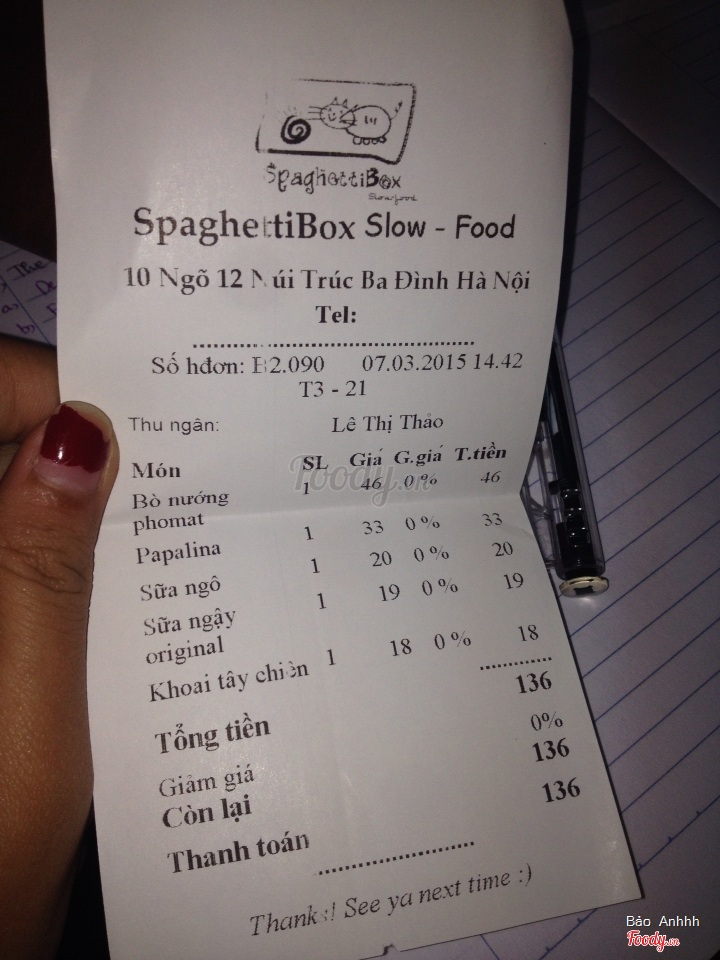 SpaghettiBox
Slowfood
SpaghettiBox Slow - Food
10 Ngõ 12 Núi Trúc Ba Đình Hà Nội
Tel:
Số hđơn: B2.090 07.03.2015 14.42
T3 - 21
Thu ngân: Lê Thị Thảo
Món SL Giá G.giá T.tiền
Bò nướng phomat 1 46 0 % 46
Papalina 1 33 0 % 33
Sữa ngô 1 20 0 % 20
Sữa ngậy original 1 19 0 % 19
Khoai tây chiên 1 18 0 % 18
Tổng tiền 136
Giảm giá 0%
Còn lại 136
Thanh toán 136
Thanks! See ya next time :)
Foody.vn
Bảo Anhhh
Foody.vn
The
a,
b,